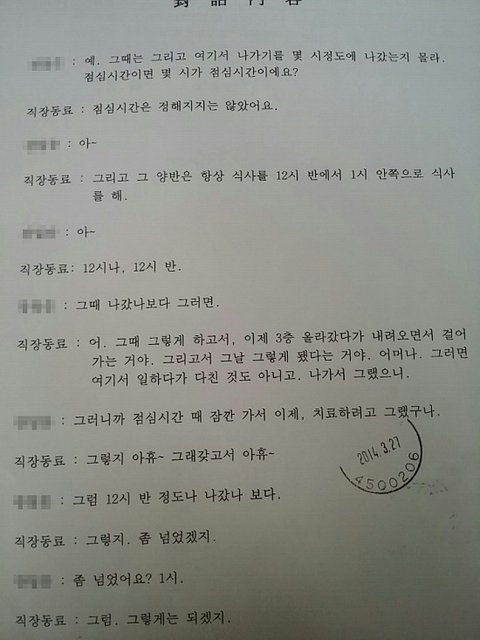 對 話 內 容
: 예. 그때는 그리고 여기서 나가기를 몇 시정도에 나갔는지 몰라.
점심시간이면 몇 시가 점심시간이에요?
직장동료 : 점심시간은 정해지지는 않았어요.
: 아~
직장동료 : 그리고 그 양반은 항상 식사를 12시 반에서 1시 안쪽으로 식사
를 해.
: 아~
직장동료: 12시나, 12시 반.
: 그때 나갔나보다 그러면.
직장동료 : 어. 그때 그렇게 하고서, 이제 3층 올라갔다가 내려오면서 걸어
가는 거야. 그리고서 그날 그렇게 됐다는 거야. 어머나. 그러면
여기서 일하다가 다친 것도 아니고. 나가서 그랬으니.
: 그러니까 점심시간 때 잠깐 가서 이제, 치료하려고 그랬구나.
직장동료 : 그렇지 아휴~ 그래갖고서 아휴~
: 그럼 12시 반 정도나 나갔나 보다.
직장동료 : 그렇지. 좀 넘었겠지.
: 좀 넘었어요? 1시.
직장동료 : 그럼. 그렇게는 되겠지.
2014.3.27
4500206